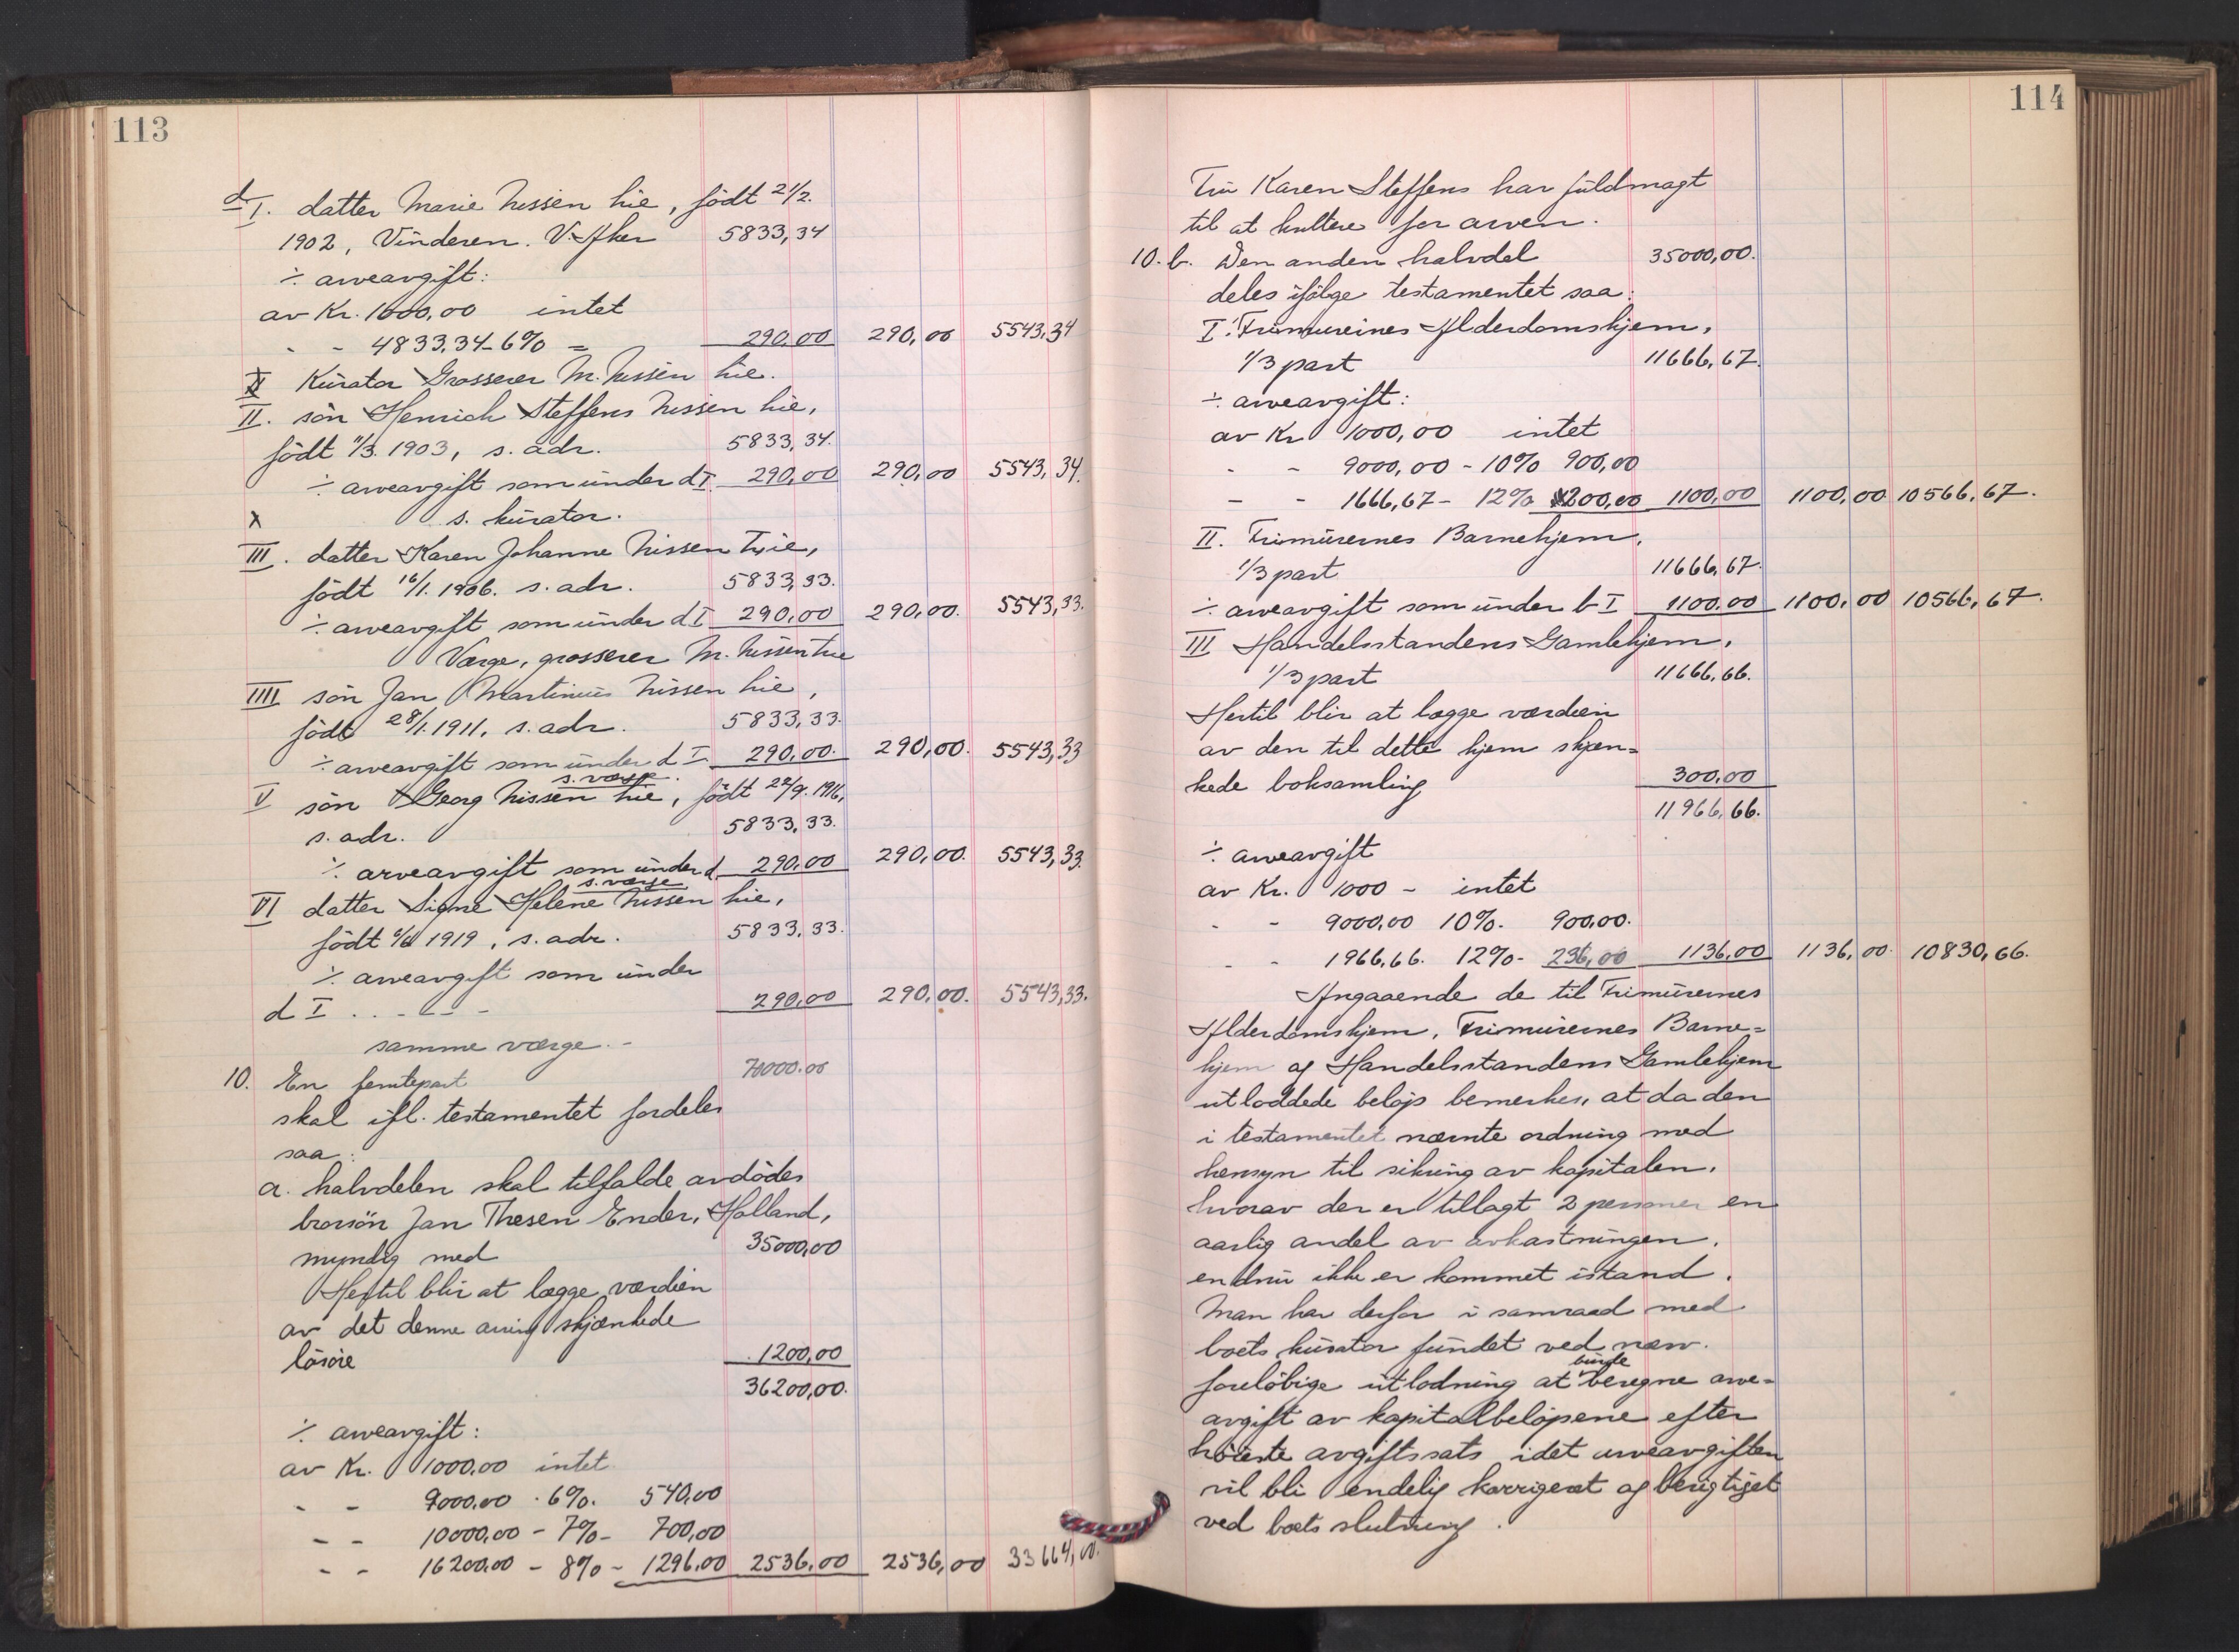 113
d
I. datter Marie Nissen hie, født 21/2.
1902, Vinderen. V. Aker 5833,34
÷ arveavgift:
av Kr. 1000,00 intet
- - 4833.34 - 6% = 290,00 290,00 5543,34
X Kurator Grosserer M. Nissen hie.
II. søn Henrich Steffens Nissen hie,
født 11/3. 1903, s. adr. 5833,34.
÷ arveavgift som under d I. 290,00 290,00 5543,34.
X s. kurator.
III. datter Karen Johanne Nissen hie,
født 16/1. 1906. s. adr. 5833,33.
÷ arveavgift som under d I 290,00 290,00. 5543,33.
Værge, grosserer M. Nissen hie
IIII søn Jan Martinus Nissen hie,
født 28/1. 1911, s. adr. 5833,33.
÷ arveavgift som under d I. 290,00. 290,00. 5543,33
s. værge.
V søn Georg Nissen hie, født 22/9. 1916,
s. adr. 5833,33.
÷ arveavgift som under d 290,00 290,00. 5543,33.
s. værge
VI datter Signe Helene Nissen hie,
født 1919, s. adr. 5833,33.
÷ arveavgift som under
d I . . - - - 290,00 290,00. 5543,33.
samme værge. -
10. En femtepart 70000.00
skal ifl. testamentet fordeles
saa:
a. halvdelen skal tilfalde avdødes
brorsøn Jan Thesen Ender, Holland,
myndig med 35000,00
Hertil blir at lægge værdien
av det denne arving skjænkede
løsøre 1200,00
36200,00.
÷ arveavgift:
av Kr. 1000,00 intet
- - 9000,00 - 6%. 540,00
- - 10000,00 - 7% - 700,00
- - 16200,00 - 8% - 1296,00 2536,00 2536,00 33664,00.
114
Fru Karen Steffens har fuldmagt
til at kvittere for arven.
10. b. Den anden halvdel 35000,00.
deles ifølge testamentet saa:
I. Frimurernes Alderdomshjem,
1/3 part 11666,67.
÷ arveavgift:
av Kr 1000,00 intet
- - 9000,00 - 10% 900,00
- - 1666,67 - 12% 200,00 1100,00 1100,00 10566,67.
II. Frimurernes Barnehjem,
1/3 part 11666,67.
÷ arveavgift som under b I 1100.00 1100,00 10566,67.
III Handelsstandens Gamlehjem,
1/3 part 11666,66.
Hertil blir at lægge værdien
av den til dette hjem skjæn-
kede boksamling 300,00
11966,66.
÷ arveavgift
av Kr. 1000 - intet
- - 9000,00 10%. 900,00.
- - 1966,66. 12% - 236,00 1136,00 1136,00. 10830,66.
Angaaende de til Frimurernes
Alderdomshjem, Frimurernes Barne-
hjem og Handelsstandens Gamlehjem
utloddede beløp bemerkes, at da den
i testamentet nævnte ordning med
hensyn til sikring av kapitalen,
hvorav der er tillagt 2 personer en
aarlig andel av avkastningen,
endnu ikke er kommet istand.
Man har derfor i samraad med
boets kurator fundet ved nærv.
burde
foreløbige utlodning at beregne arve-
avgift av kapitalbeløpene efter
høieste avgiftssats idet arveavgiften
vil bli endelig korrigeret og berigtiget
ved boets slutning.